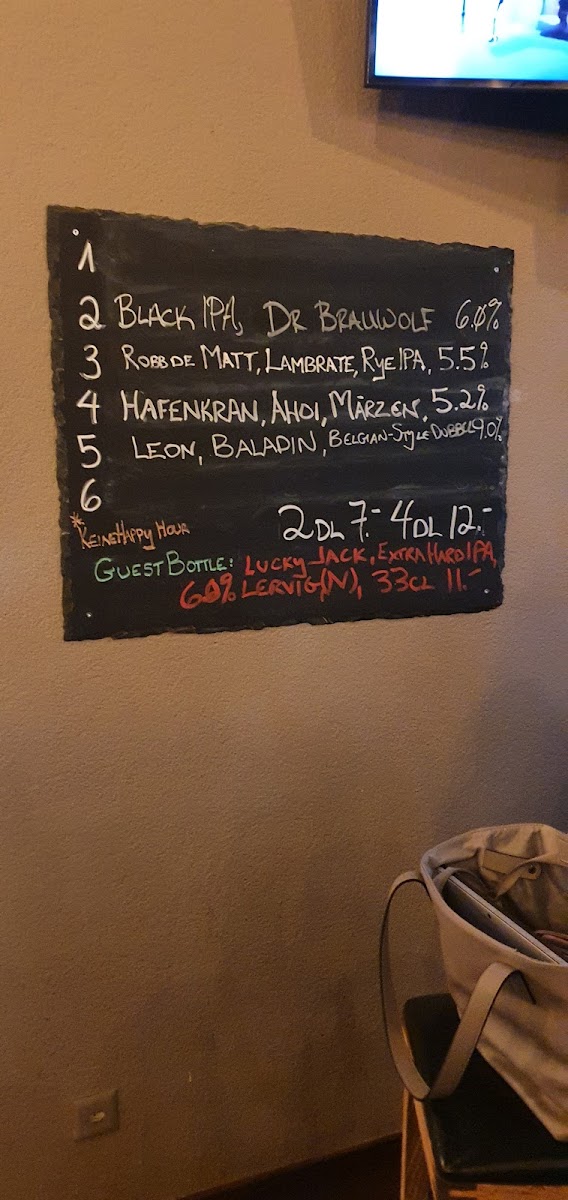 1
2 BLACK IPA, DR BRAUWOLF 6.0%
3 ROBB DE MATT, LAMBRATE, RyE IPA, 5.5%
4 HAFENKRAN, AHOI, MÄRZEN, 5.2%
5 LEON, BALADIN, BELGIAN-STyLE DUBBEL 9.0%
6
*KEINE HAPPY HOUR 2DL 7.- 4DL 12.-
GUEST BOTTLE: LUCKY JACK, EXTRA HARD IPA,
6.0% LERVIG(N), 33CL 11.-